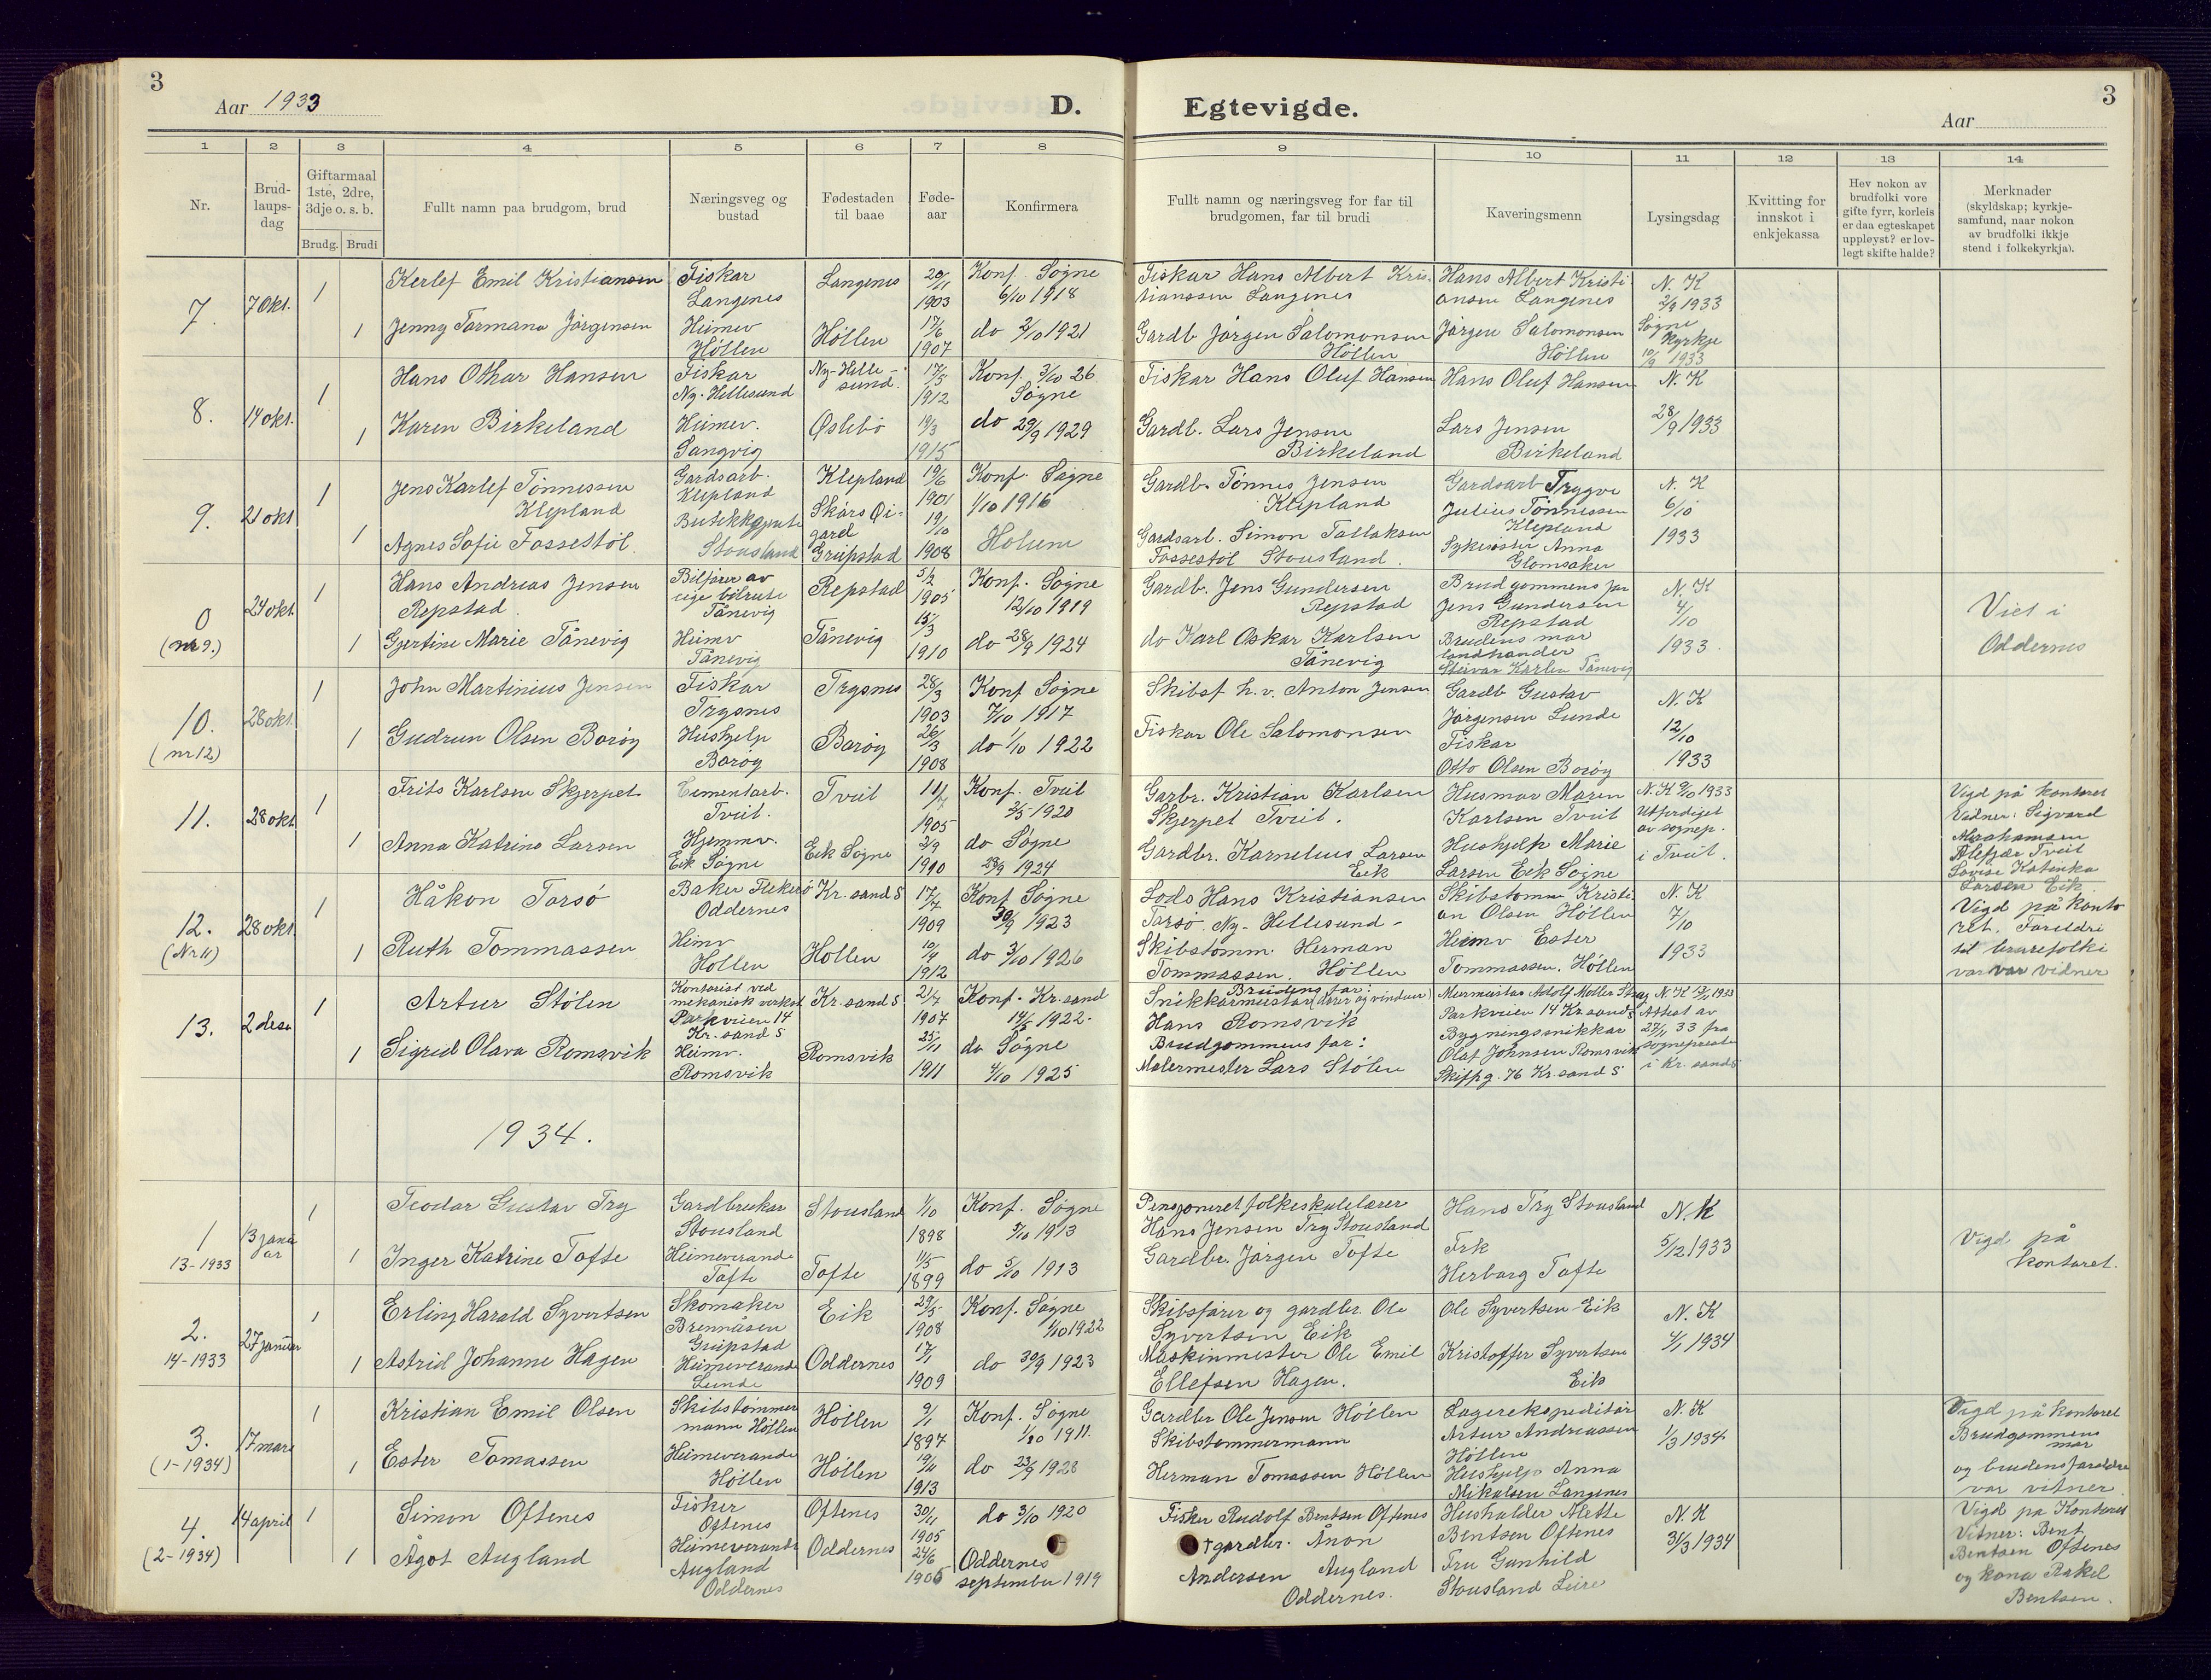 3
Aar 1933
D.
Egtevigde.
Aar
3
1 2 3 4 5 6 7 8 9 10 11 12 13 14
Nr.
Brud-
laups-
dag
Giftarmaal
1ste, 2dre,
3dje o. s. b.
Brudg. Brudi
Fullt namn paa brudgom, brud
Næringsveg og
bustad
Fødestaden
til baae
Føde-
aar
Konfirmera
Fullt namn og næringsveg for far til
brudgomen, far til brudi
Kaveringsmenn
Lysingsdag
Kvitting for
innskot i
enkjekassa
Hev nokon av
brudfolki vore
gifte fyrr, korleis
er daa egteskapet
uppløyst? er lov-
legt skifte halde?
Merknader
(skyldskap; kyrkje-
samfund, naar nokon
av brudfolki ikkje
stend i folkekyrkja).
7.
7 Okt.
1
1
Kerlef Emil Kristiansen
Jenny Tormana Jørgensen
Fiskar
Langenes
Heimev
Høllen
Langenes
Høllen
20/11
1903
17/6
1907
Konf. Søgne
6/10 1918
do 2/10 1921
Fiskar Hans Albert Kris-
tianssen Langenes
Gardb Jørgen Salomonsen
Høllen
Hans Albert Kristi
ansen Langenes
Jørgen Salomonsen
Høllen
N. K
2/9 1933
Søgne
Kyrkje
10/9 1933
8.
14 okt.
1
1
Hans Othar Hansen
Karen Birkeland
Fiskar
Ny-Hellesund
Heimev.
Langvig
Ny-Helle-
sund.
Øslebø
17/5
1912
19/3
1915
Konf. 3/10 26
Søgne
do 29/9 1929
Fiskar Hans Oluf Hansen
Gardb. Lars Jensen
Birkeland
Hans Oluf Hansen
Lars Jensen
Birkeland
N. K
28/9 1933
9.
21 okt
1
1
Jens Karlef Tønnessen
Klepland
Agnes Sofie Fossestøl.
Gardsarb.
Klepland
Butikkgjente
Stousland
Klepland
Skårs Øi-
gard
Greipstad
19/6
1901
19/10
1908
Konf. Søgne
1/10 1916
Holum
Gardb. Tønnes Jensen
Klepland
Gardsarb. Simon Tallaksen
Fossestøl Stousland.
Gardsarb Trygve
Julius Tønnessen
Klepland
Sykesøster Anna
Glomsaker
N. K
6/10
1933
0
(nr 9.)
24 okt.
1
1
Hans Andreas Jensen
Repstad.
Gjertine Marie Tånevig
Bilfører av
eige bilrute
Tånevig
Heimv
Tånevig
Repstad
Tånevig
5/2
1905
15/3
1910
Konf. Søgne
12/10 1919
do 28/9 1924
Gardb. Jens Gundersen
Repstad
do Karl Oskar Karlsen
Tånevig
Brudgommens far
Jens Gundersen
Repstad
Brudens mor
landhandler
Karlsen Tånevig
N. K
4/10
1933.
Viet i
Oddernes
10.
(nr 12)
28 okt.
1
1
John Martinius Jensen
Gudrun Olsen Borøy
Fiskar
Trysnes
Hushjelp
Borøy
Trysnes
Borøy
28/3
1903
26/3
1908
Konf Søgne
7/10 1917
do 1/10 1922
Skibsf h. v. Anton Jensen
Fiskar Ole Salomonsen
Gardb Gustav
Jørgensen Lunde
Fiskar
Otto Olsen Borøy
N. K
12/10
1933
11.
28 okt
1
1
Frits Karlsen Skjerpet
Anna Katrine Larsen
Cementarb.
Tveit.
Hjemmv.
Eik Søgne
Tveit
Eik Søgne
11/7
1905
2/9
1910
Konf. Tveit
2/5 1920
do Søgne
28/9 1924
Garbr. Kristian Karlsen
Skjerpet Tveit.
Gardbr. Karnelius Larsen
Eik
Husmor Maren
Karlsen Tveit
Hushjelp Marie
Larsen Eik Søgne
N. K 9/10 1933
Utferdiget
av sognep.
i Tveit.
Vigd på kontoret
Vidner: Sigvard
Abrahamsen
Ålefjær Tveit
Lovise Katinka
Larsen Eik
12.
(Nr 11)
28 okt.
1
1
Håkon Torsø
Ruth Tommassen
Baker Flekerø
Oddernes
Heimv
Høllen
Kr. sand S
Høllen
17/4
1909
10/4
1912
Konf Søgne
30/9 1923
do 3/10 1926
Lods Hans Kristiansen
Torsø. Ny-Hellesund -
Skibstomm. Herman
Tommassen. Høllen
Skibstomm Kristi
an Olsen Høllen
Heimv Ester
Tommassen. Høllen
N. K
7/10
1933
Vigd på konto
ret. Foreldri
til brurefolki
var var vidner
13.
2 desn
1
1
Artur Stølen
Sigrid Olava Romsvik
Kontorist ved
mekanisk verkst
Parkveien 14
Kr. sand S
Heimv.
Romsvik
Kr. sand S
Romsvik
21/7
1907
25/11
1911
Konf. Kr. sand
14/5 1922.
do Søgne
4/10 1925
Brudens far:
Snikkarmeistar (dører og vinduer)
Hans Romsvik
Brudgommens far:
Malermester Lars Stølen
Murmeistar Adolf Møller
Parkveien 14 Kr sand S
Bygningssnikkar
Olaf Johnsen Romsvik
Skippg. 76 Kr. sand S
Attest av
27/11 33 fra
sogneprest
i Kr. sand S
1934.
1
13-1933
13 janu
ar
1
1
Teodor Gustav Try
Inger Katrine Tofte
Gardbrukar
Stousland
Heimeverande
Tofte
Stousland
Tofte
1/10
1898
11/5
1899
Konf. Søgne
5/10 1913
do 5/10 1913
Pensjoneret folkeskulelærer
Hans Jensen Try Stousland
Gardbr. Jørgen Tofte
Hans Try Stousland
Frk
Herborg Tofte
N. K
5/12 1933
Vigd på
kontoret.
2.
14-1933
27 januar
1
1
Erling Harald Syvertsen
Astrid Johanne Hagen
Skomaker
Brennåsen
Greipstad
Heimeverande
Lunde
Eik
Oddernes
29/5
1908
17/1
1909
Konf. Søgne
1/10 1922
do 30/9 1923
Skibsfører og gardbr. Ole
Syvertsen Eik
Maskinmester Ole Emil
Ellefsen Hagen.
Ole Syvertsen Eik
Kristoffer Syvertsen
Eik
N. K
4/1 1934
3.
(1-1934)
17 mars
1
1
Kristian Emil Olsen
Ester Tomassen
Skibstømmer
mann Høllen
Heimeverande
Høllen
Høllen
Høllen
9/1
1897
19/11
1913
Konf. Søgne
1/10 1911.
do 23/9 1928
Gardbr Ole Jensen Høllen
Skibstømmermann
Herman Tomassen Høllen
Lagerekspeditør
Artur Andreassen
Høllen
Hushjelp Anna
Mikalsen Langenes
N. K
1/3 1934
Vigd på kontoret
Brudgommens
mor
og brudens foreldre
var vitner
4.
(2-1934)
14 april
1
1
Simon Oftenes
Ågot Augland
Fisker
Oftenes
Heimeverande
Augland
Oddernes
Oftenes
Oddernes
30/11
1905
24/6
1905
do 3/10 1920
Oddernes
september 1919
Fisker Rudolf Bentsen Oftenes
+ gardbr. Ånon
Andersen Augland
Oddernes.
Husholder Alette
Bentsen Oftenes
Fru Gunhild
Stousland Leire
N. K
31/3 1934
Vigd på Kontoret
Vitner: Bent
Bentsen Oftenes
og kona Rakel
Bentsen.